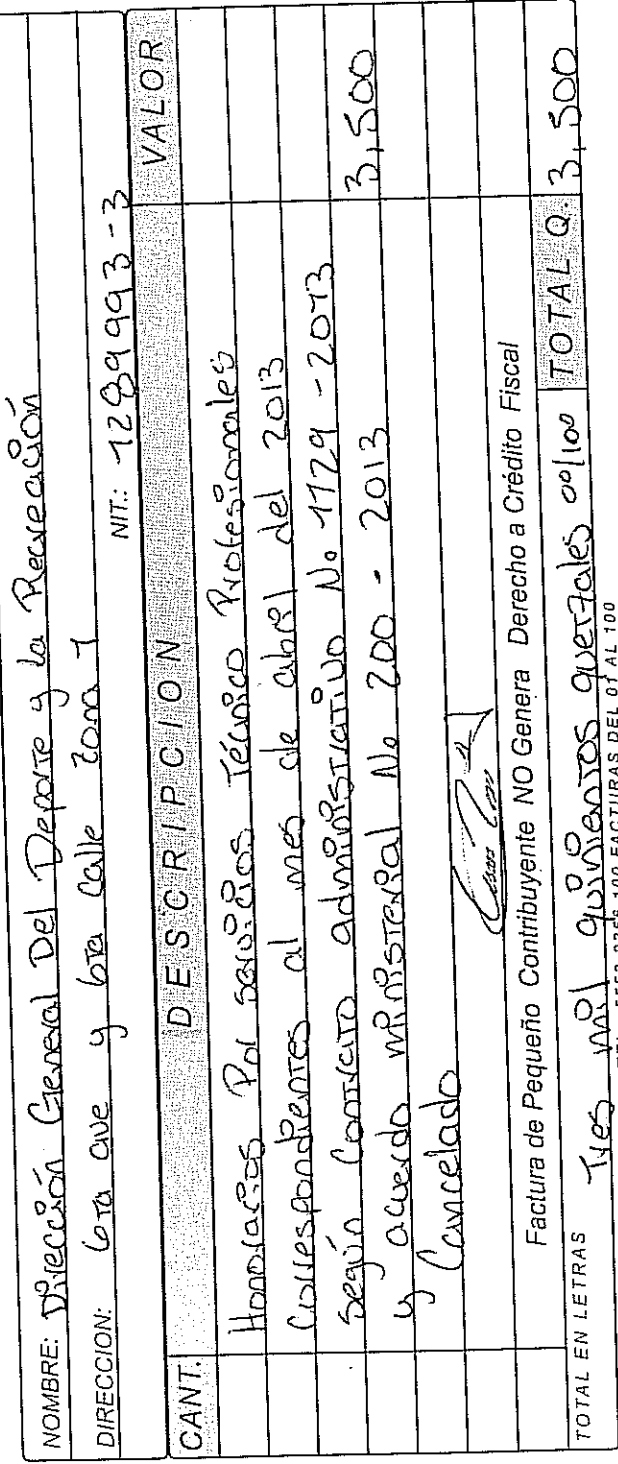 NOMBRE: Dirección General Del Deporte y la Recreación
DIRECCION: 6ta ave y 6ta calle zona 1
NIT.: 1289993-3
CANT. DESCRIPCION VALOR
Honorarios Por servicios Técnico Profesionales
Correspondientes al mes de abril del 2013
según Contrato administrativo No 1129-2013 3,500
y acuerdo ministerial No 200-2013
Cancelado
Factura de Pequeño Contribuyente NO Genera Derecho a Crédito Fiscal
TOTAL EN LETRAS Tres mil quinientos quetzales 00/100 TOTAL Q. 3,500
100 FACTURAS DEL 01 AL 100